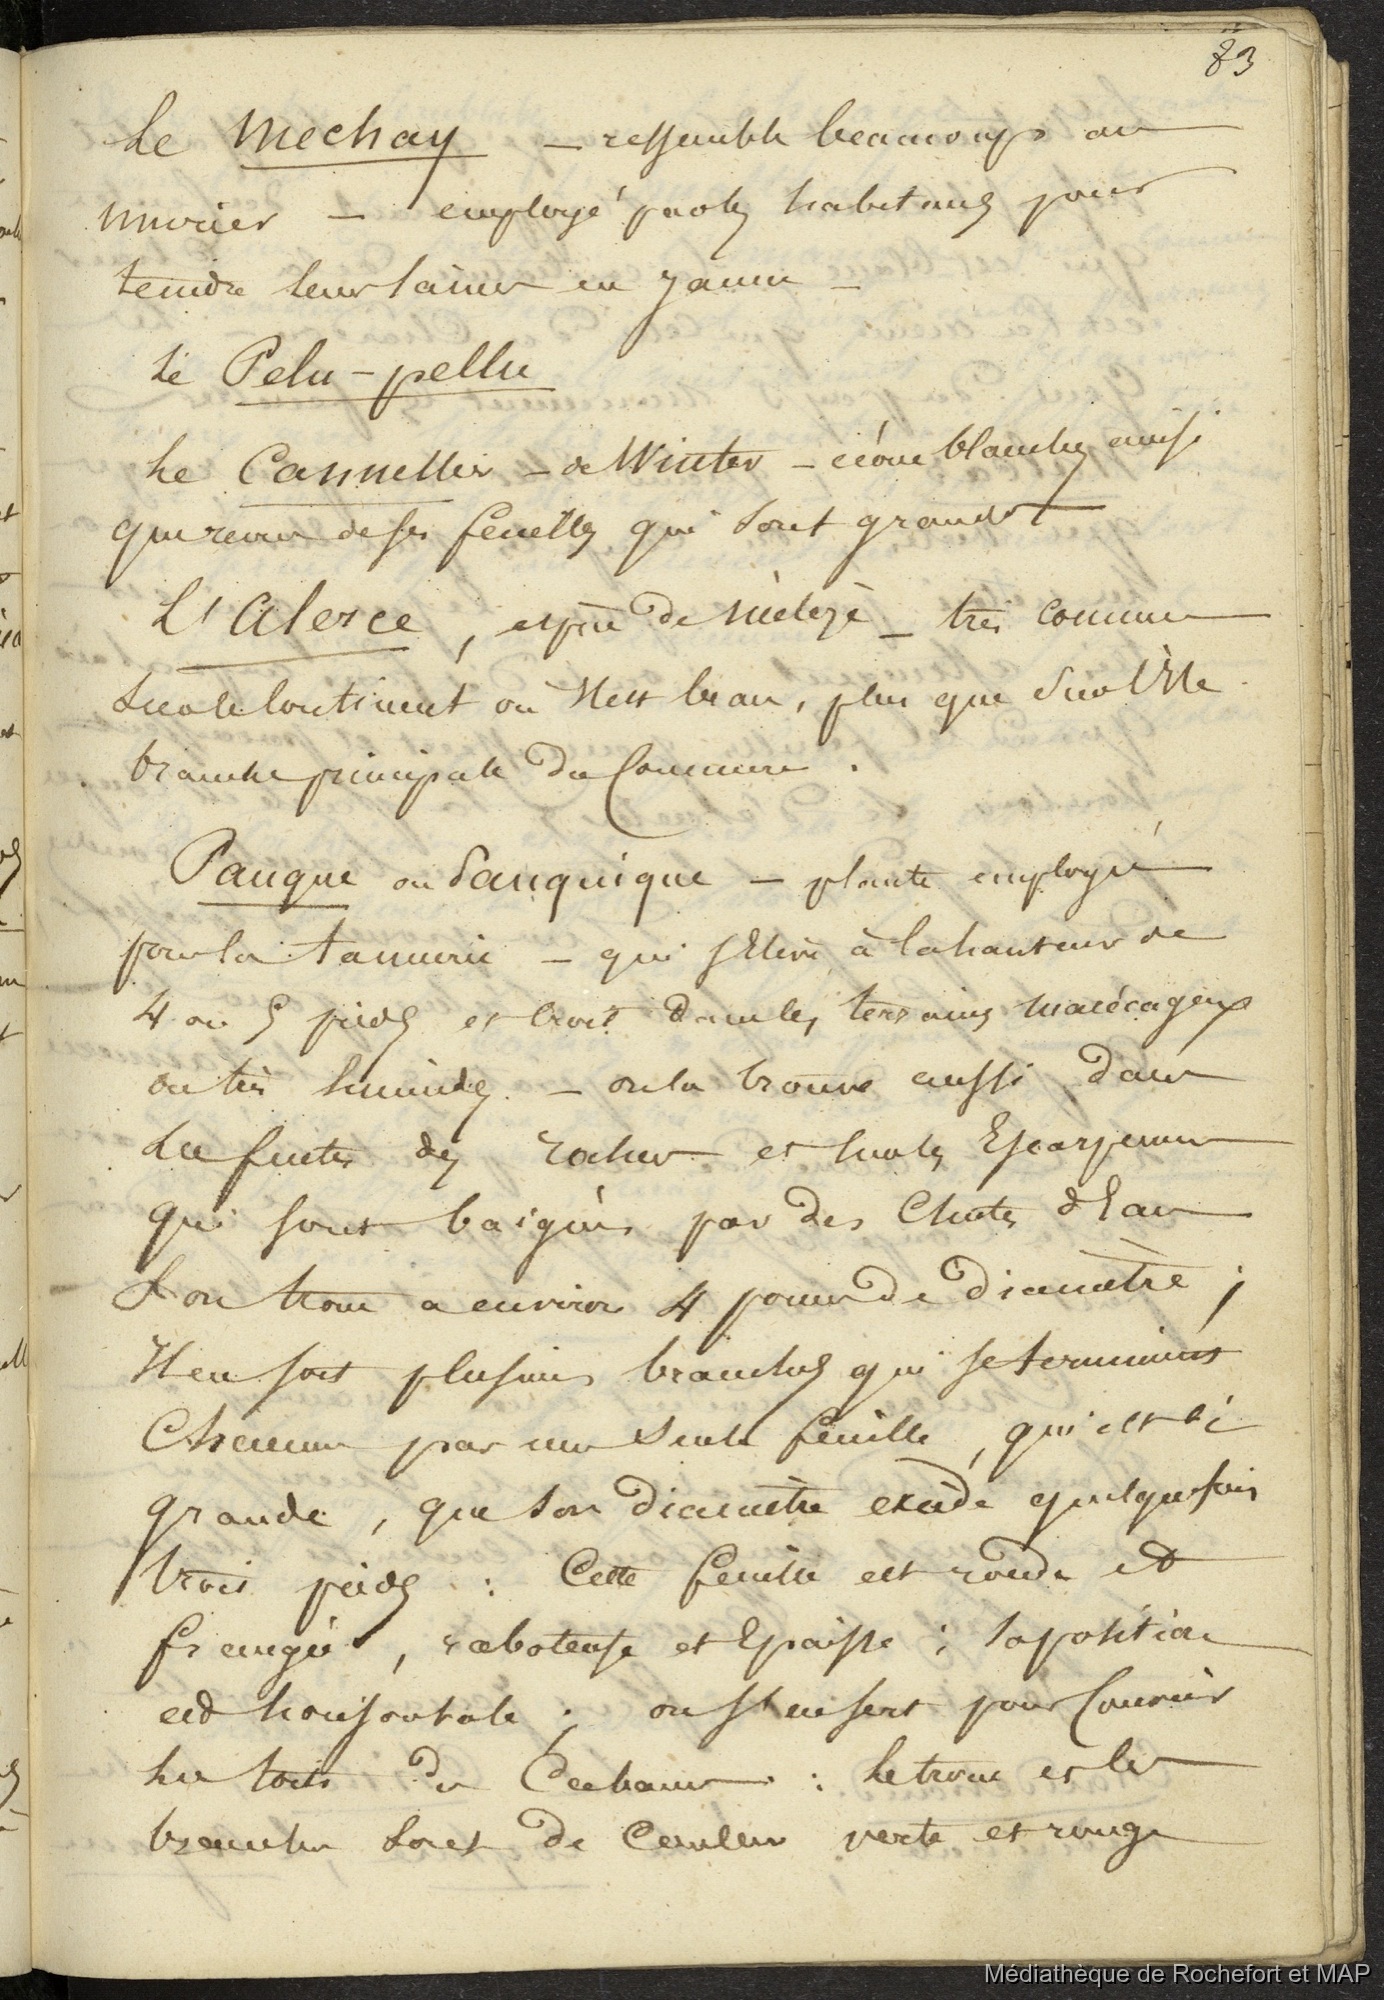 83
Le Mechay — ressemble beaucoup au
murier — employé par les habitans pour
teindre leurs laines en jaune —
Le Pelu-pellu
Le Cannellier — de Winter — écorce blanche ainsi
que revers de ses feuilles qui sont grandes
L'Alerce, espèce de mélèze — très commun
sur le Continent où il est beau, plus que sur l'Isle
branche principale du Commerce.
Panque ou Panquique — plante employée
pour la tannerie — qui s'élève à la hauteur de
4 ou 5 pieds et croit dans les terrains marécageux
ou très humides. — on la trouve aussi dans
les fentes des rochers et sur les Escarpemens
qui sont baignés par des Chutes d'Eau
Son tronc a environ 4 pouces de diamètre ;
Il en sort plusieurs branches qui se terminent
Chacune par une seule feuille, qui est si
grande, que son diamètre excède quelquefois
trois pieds : Cette feuille est ronde et
frangée, raboteuse et Epaisse ; sa position
est horisontale ; on s'en sert pour Couvrir
les toits de Cabanes : le tronc et les
branches sont de Couleur verte et rouge
Médiathèque de Rochefort et MAP